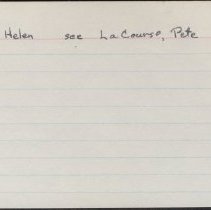 Helen see LaCourse, Pete